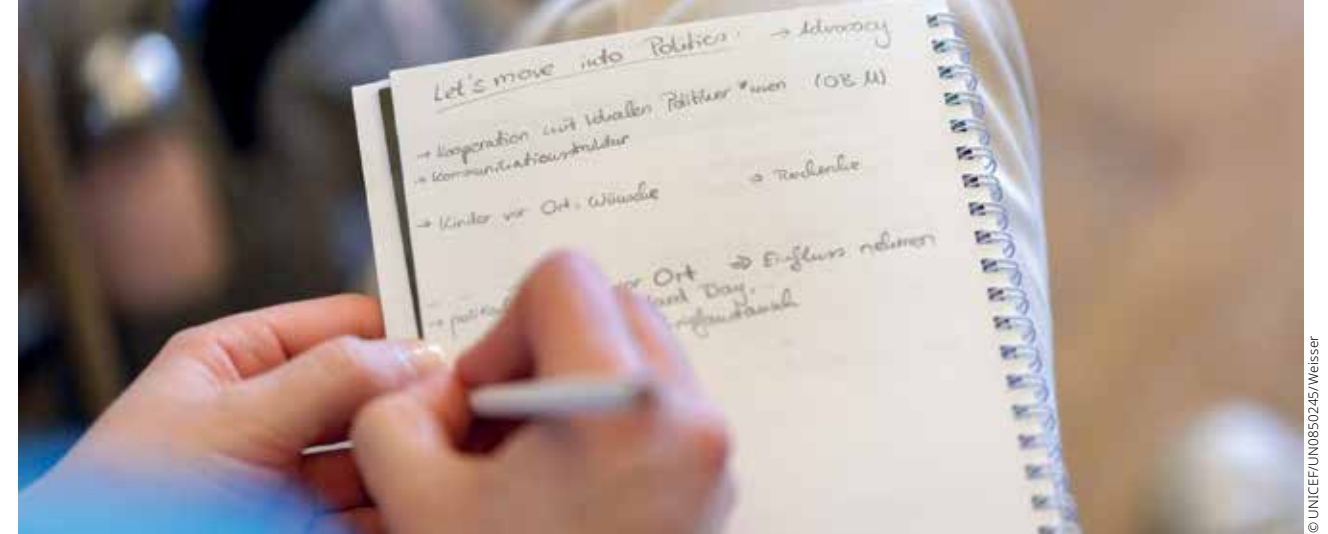 Let's move into Politics: → Advocacy
→ Kooperation mit lokalen Politiker*innen (OBM)
→ Kommunikationsstruktur
→ Kinder vor Ort: Wünsche → Recherche
→ vor Ort ⇒ Einfluss nehmen
Day.
© UNICEF/UN0850245/Weisser